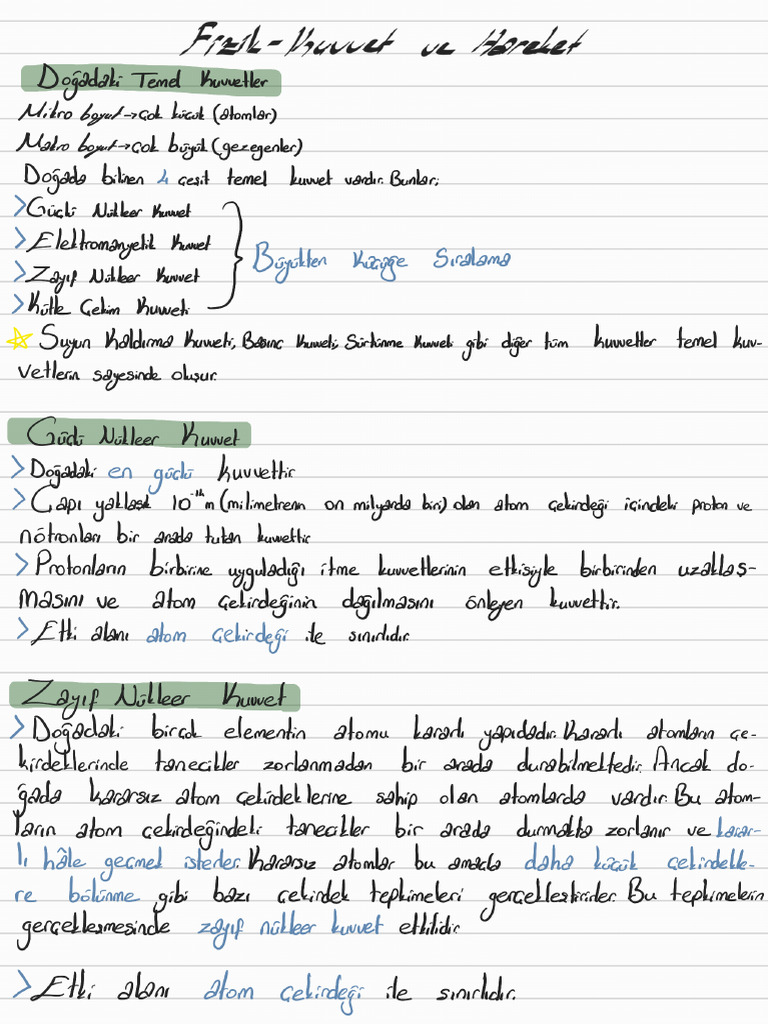 Fizik-Kuvvet ve Hareket
Doğadaki Temel Kuvvetler
Mikro boyut→çok küçük (atomlar)
Makro boyut→çok büyük (gezegenler)
Doğada bilinen 4 çeşit temel kuvvet vardır. Bunlar;
>Güçlü Nükleer Kuvvet
>Elektromanyetik Kuvvet
>Zayıf Nükleer Kuvvet
>Kütle Çekim Kuvveti
Büyükten Küçüğe Sıralama
☆ Suyun Kaldırma Kuvveti, Basınç Kuvveti, Sürtünme Kuvveti gibi diğer tüm kuvvetler temel kuv-
vetlerin sayesinde oluşur.
Güçlü Nükleer Kuvvet
>Doğadaki en güçlü kuvvettir
>Çapı yaklaşık 10⁻¹⁴m (milimetrenin on milyarda biri) olan atom çekirdeği içindeki proton ve
nötronları bir arada tutan kuvvettir
>Protonların birbirine uyguladığı itme kuvvetlerinin etkisiyle birbirinden uzaklaş-
masını ve atom çekirdeğinin dağılmasını önleyen kuvvettir.
>Etki alanı atom çekirdeği ile sınırlıdır
Zayıf Nükleer Kuvvet
>Doğadaki birçok elementin atomu kararlı yapıdadır. Kararlı atomların çe-
kirdeklerinde tanecikler zorlanmadan bir arada durabilmektedir. Ancak do-
ğada kararsız atom çekirdeklerine sahip olan atomlarda vardır. Bu atom-
ların atom çekirdeğindeki tanecikler bir arada durmakta zorlanır ve karar-
lı hâle geçmek isterler. Kararsız atomlar bu amaçla daha küçük çekirdekle-
re bölünme gibi bazı çekirdek tepkimeleri gerçekleştirirler. Bu tepkimelerin
gerçekleşmesinde zayıf nükleer kuvvet etkilidir
>Etki alanı atom çekirdeği ile sınırlıdır.